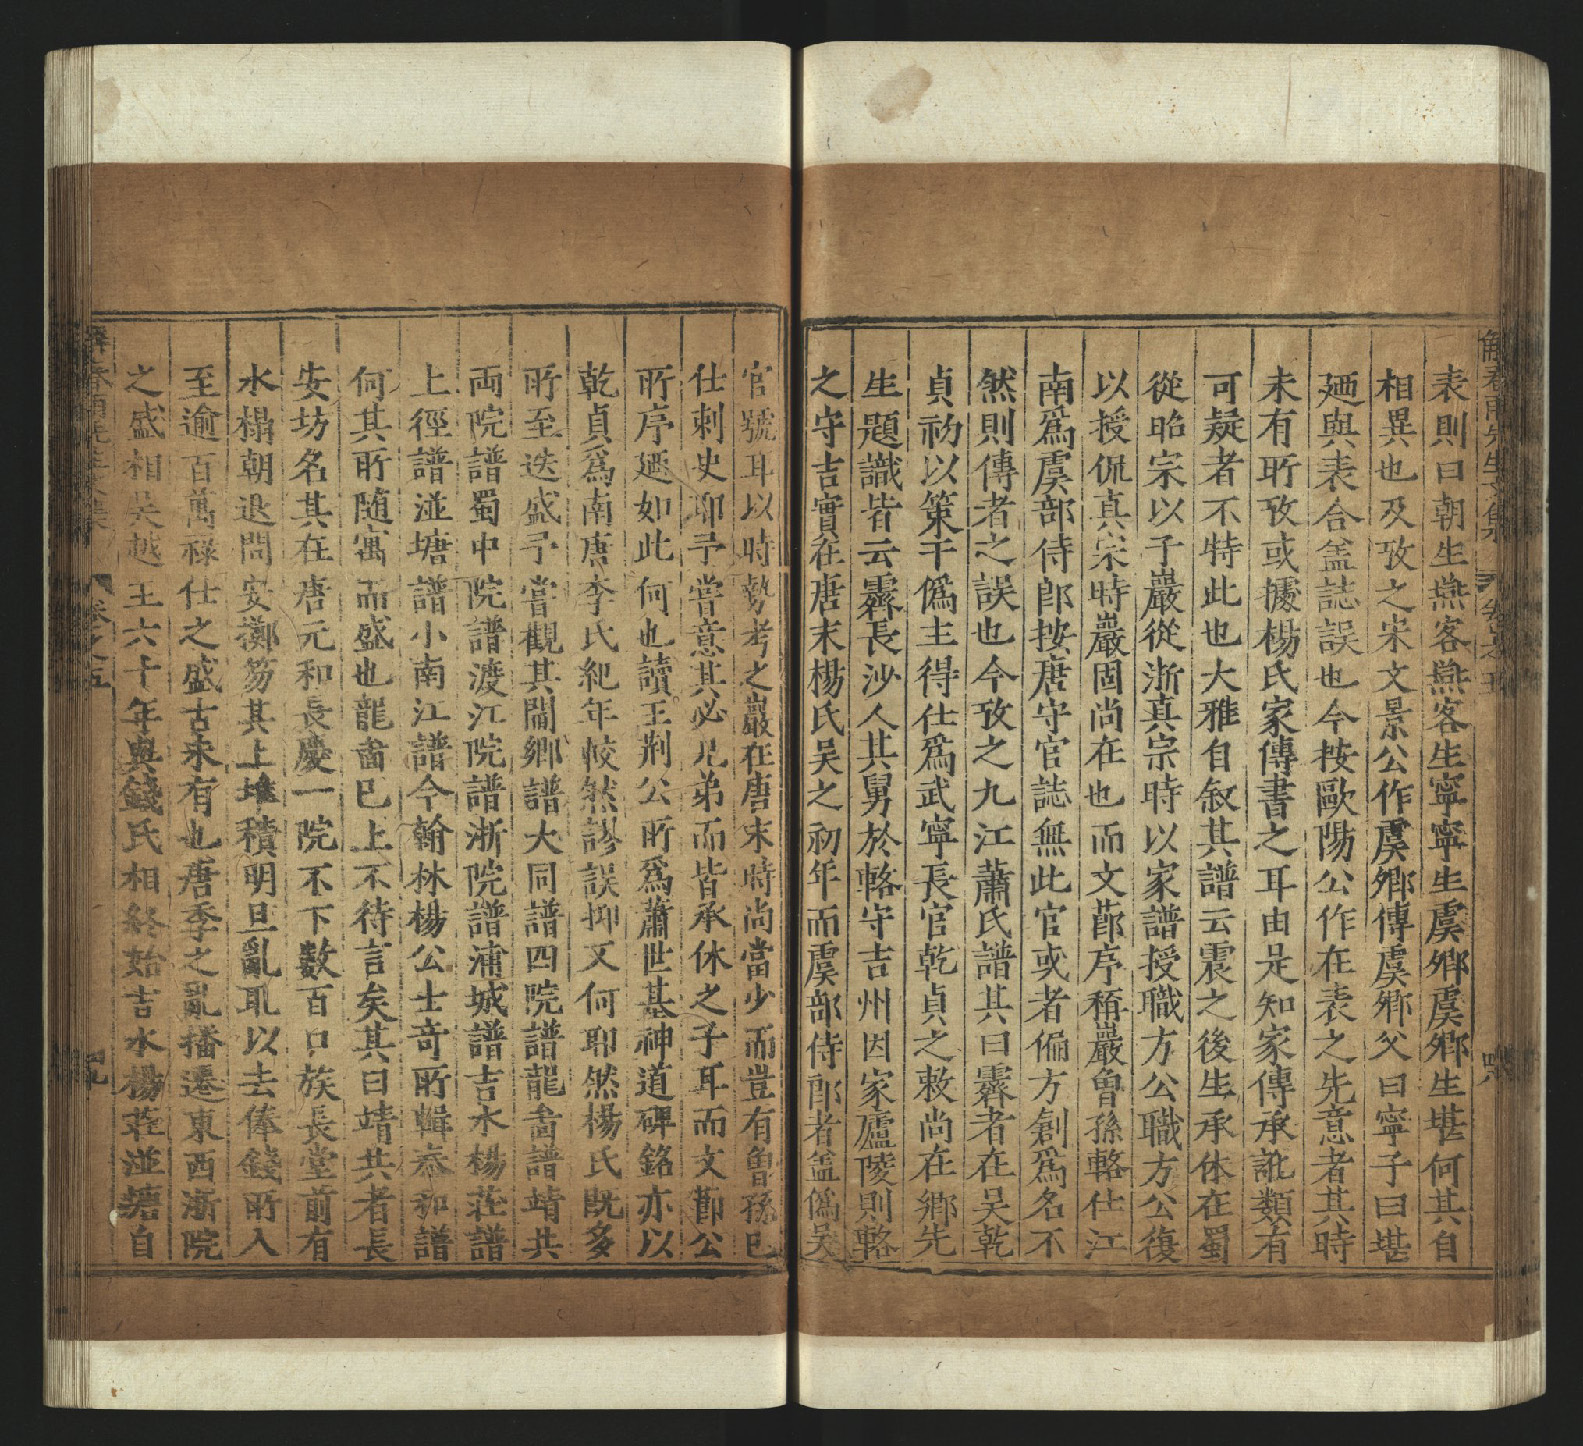 解春雨先生文集　卷之五
表則曰朝生燕客燕客生寧寧生虞鄉虞鄉生堪何其自
相異也及攷之宋文景公作虞鄉傳虞鄉父曰寧子曰堪
廼與表合盆誌誤也今按歐陽公作在表之先意者其時
未有所攷或據楊氏家傳書之耳由是知家傳承訛類有
可疑者不特此也大雅自敘其譜云震之後生承休在蜀
從昭宗以子巖從浙真宗時以家譜授職方公職方公復
以授侃真宗時巖固尚在也而文莭序稱巖魯孫輅仕江
南爲虞部侍郎按唐守官誌無此官或者偏方創爲名不
然則傳者之誤也今攷之九江蕭氏譜其曰霽者在吴乾
貞初以策干僞主得仕爲武寧長官乾貞之敕尚在鄉先
生題識皆云霽長沙人其舅於輅守吉州因家廬陵則輅
之守吉實在唐末楊氏吴之初年而虞部侍郎者盆僞吴
官號耳以時勢考之巖在唐末時尚當少而豈有魯孫已
仕刺史耶予嘗意其必兄弟而皆承休之子耳而文莭公
所序廼如此何也讀王荆公所爲蕭世基神道碑銘亦以
乾貞爲南唐李氏紀年較然謬誤抑又何耶然楊氏既多
所至迭盛予嘗觀其閿鄉譜大同譜四院譜龍畬譜靖共
両院譜蜀中院譜渡江院譜浙院譜浦城譜吉水楊莊譜
上徑譜湴塘譜小南江譜今翰林楊公士竒所輯泰和譜
何其所隨寓而盛也龍畬已上不待言矣其曰靖共者長
安坊名其在唐元和長慶一院不下數百口族長堂前有
水榻朝退問安擲笏其上堆積明旦亂取以去俸錢所入
至逾百萬禄仕之盛古未有也唐季之亂播遷東西浙院
之盛相吴越王六十年與錢氏相終始吉水楊莊湴塘自
卷之五